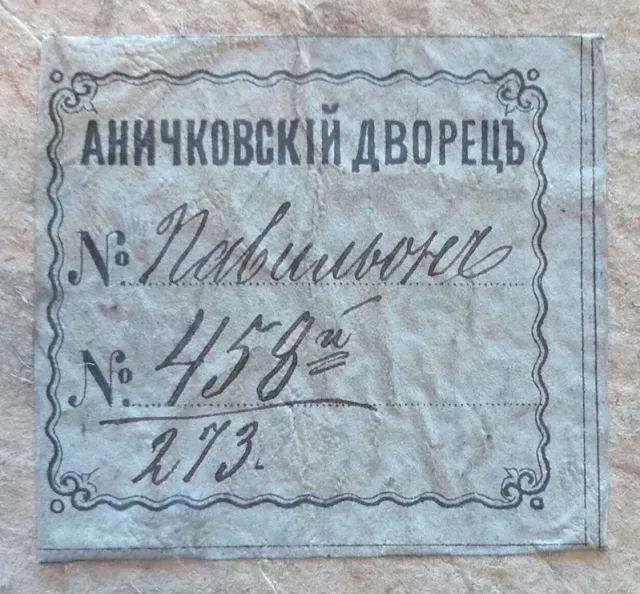 АНИЧКОВСКІЙ ДВОРЕЦЪ
№ Павильонъ
№ 458й
273.